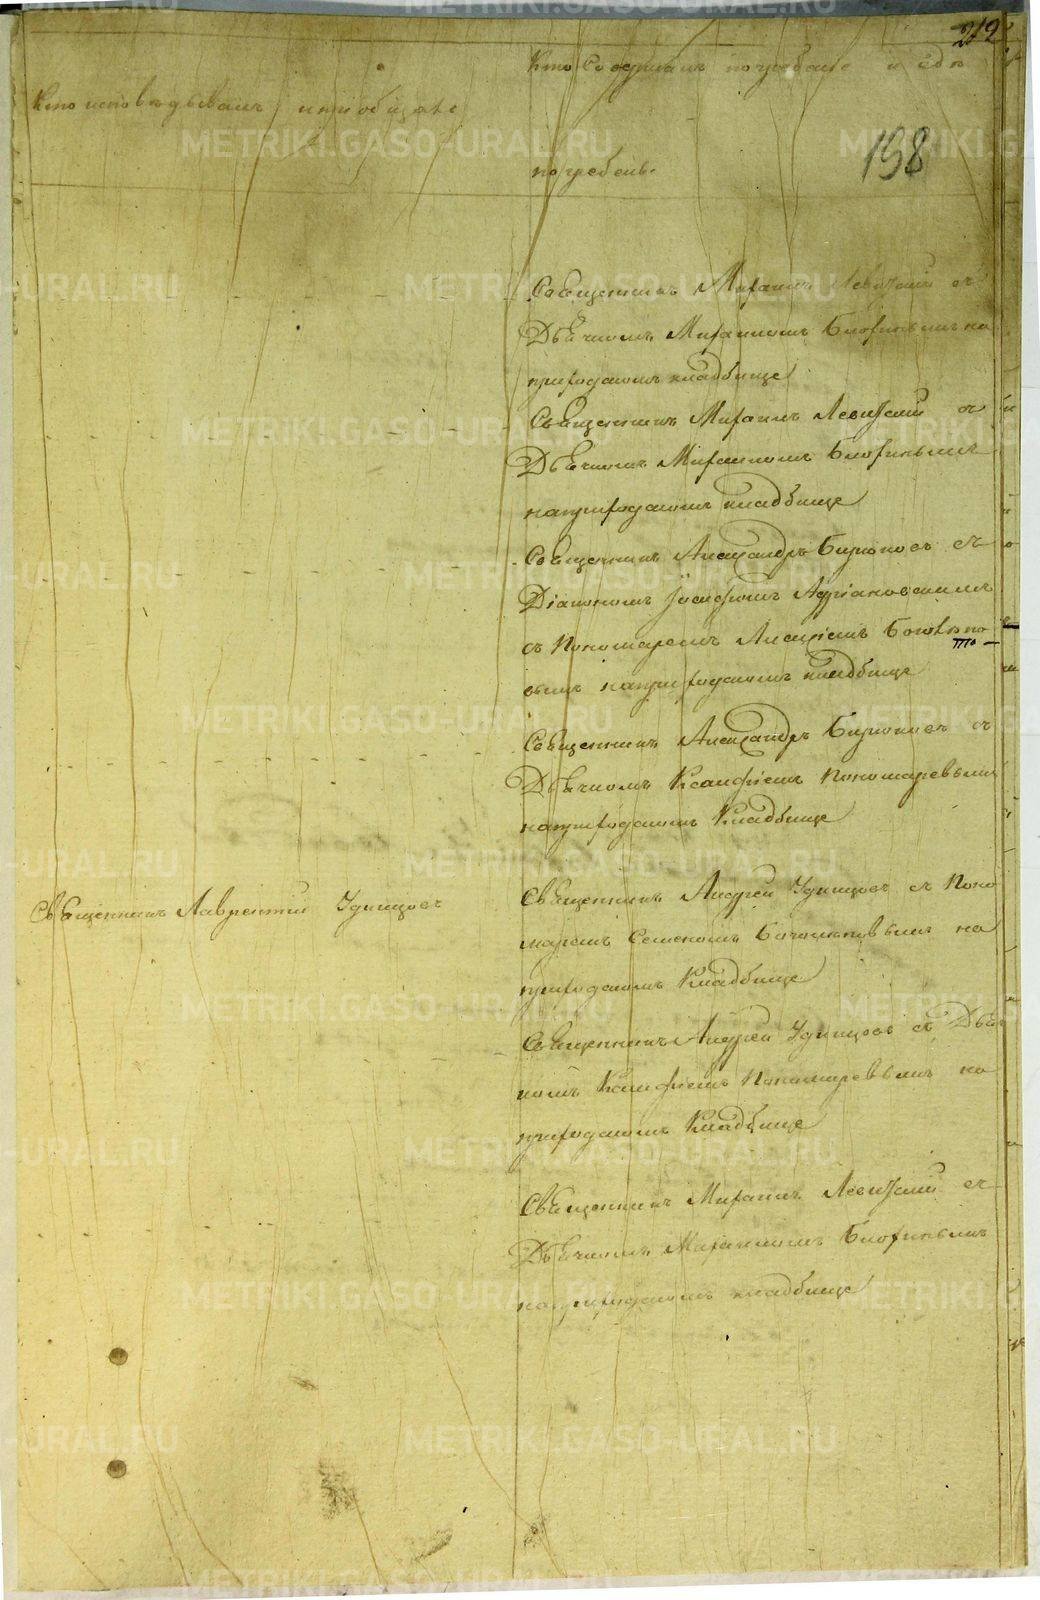 219
Кто исповѣдывалъ и пріобщалъ
Кто совершалъ погребеніе и гдѣ
погребенъ.
198
Священникъ Михаилъ Левитскій съ
Дьячкомъ Михаиломъ на
приходскомъ кладбище
Священникъ Михаилъ Левитскій съ
Дьячкомъ Михаиломъ
на приходскомъ кладбище
Священникъ Александръ Бирюковъ съ
Діакономъ Іосифомъ Адріановскимъ
съ Пономаремъ Алексіемъ
вымъ на приходскомъ кладбище
Священникъ Александръ Бирюковъ съ
Дьячкомъ Ксанфіемъ Пономаревымъ
на приходскомъ Кладбище
Священникъ Лаврентій Удинцовъ
Священникъ Андрей Удинцовъ съ Поно
маремъ Семеномъ на
приходскомъ Кладбище
Священникъ Андрей Удинцовъ съ Дьяч
комъ Ксанфіемъ Пономаревымъ на
приходскомъ Кладбище
Священникъ Михаилъ Левитскій съ
Дьячкомъ Михаиломъ
на приходскомъ кладбище
METRIKI.GASO-URAL.RU